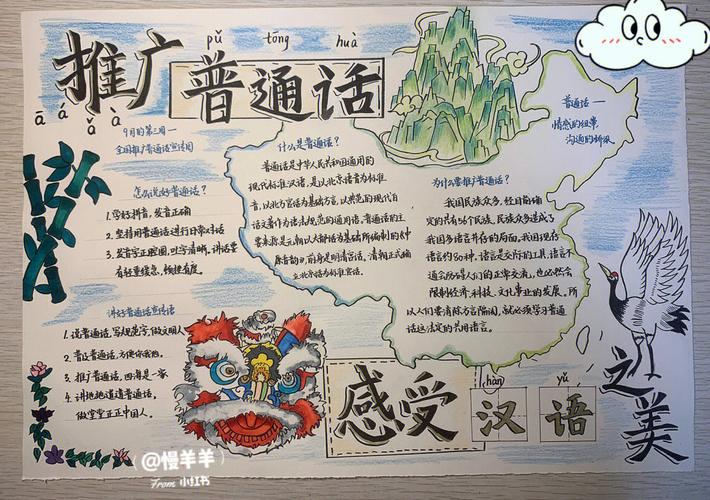 pǔ tōng huà
推广普通话
ā á ǎ à
9月的第三周一
全国推广普通话宣传周
怎么说好普通话？
1. 学好拼音，发音正确
2. 坚持用普通话进行日常对话
3. 发音字正腔圆，吐字清晰，讲话要
有轻重缓急，顿挫有度。
讲好普通话宣传语
1. 说普通话，写规范字，做文明人
2. 普及普通话，方便你我他。
3. 推广普通话，四海是一家
4. 讲地地道道普通话，
做堂堂正正中国人。
什么是普通话？
普通话是中华人民共和国通用的
现代标准汉语，是以北京语音为标准
音，以北方官话为基础方言，以典范的现代白
话文著作为语法规范的通用语。普通话的主
要来源是元朝以大都话为基础所编制的《中
原音韵》，前身是明清官话，清朝正式确
立北京话为标准官话。
普通话——
情感的纽带
沟通的桥梁
为什么要推广普通话？
我国民族众多，经目前确
定的共有56个民族，民族众多造成了
我国多语言并存的局面，我国现存
语言约80种，语言是交际的工具，语言不
通会防碍人们的正常交流，也必然会
限制经济、科技、文化事业的发展，所
以人们要消除方言隔阂，就必须学习普通
话这法定的共用语言。
hàn yǔ
感受汉语之美
@慢羊羊
From 小红书